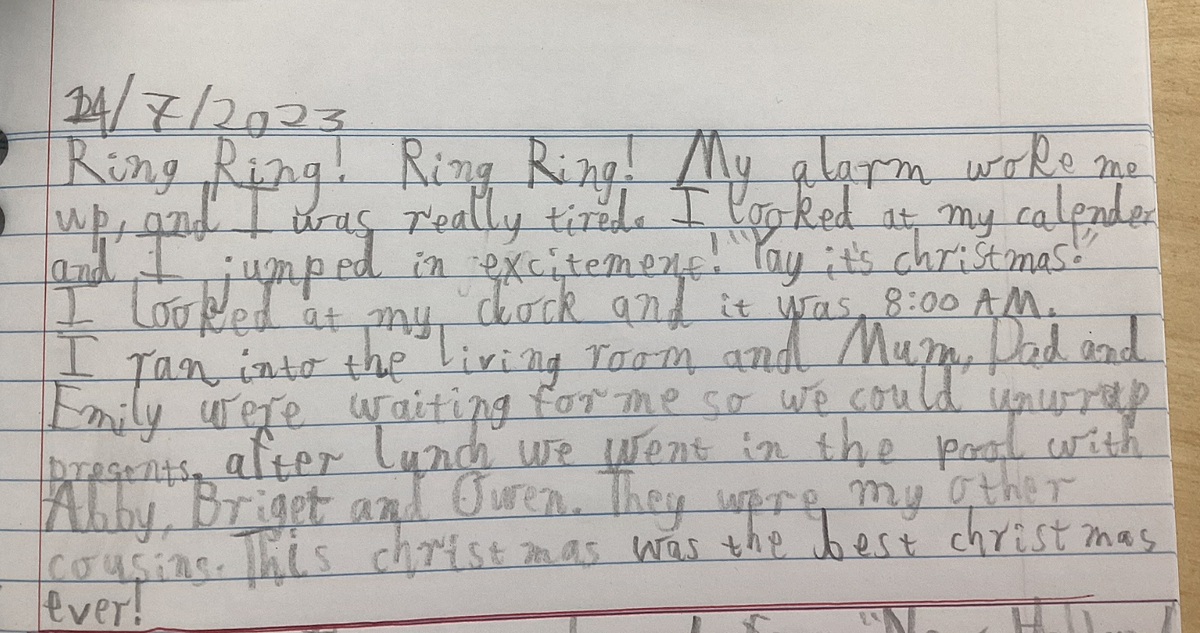 24/7/2023
Ring Ring! Ring Ring! My alarm woke me
up, and I was really tired. I looked at my calender
and I jumped in excitement! "Yay it's christmas!"
I looked at my clock and it was 8:00 AM.
I ran into the living room and Mum, Dad and
Emily were waiting for me so we could unwrap
presents, after lunch we went in the pool with
Abby, Briget and Owen. They were my other
cousins. This christmas was the best christmas
ever!